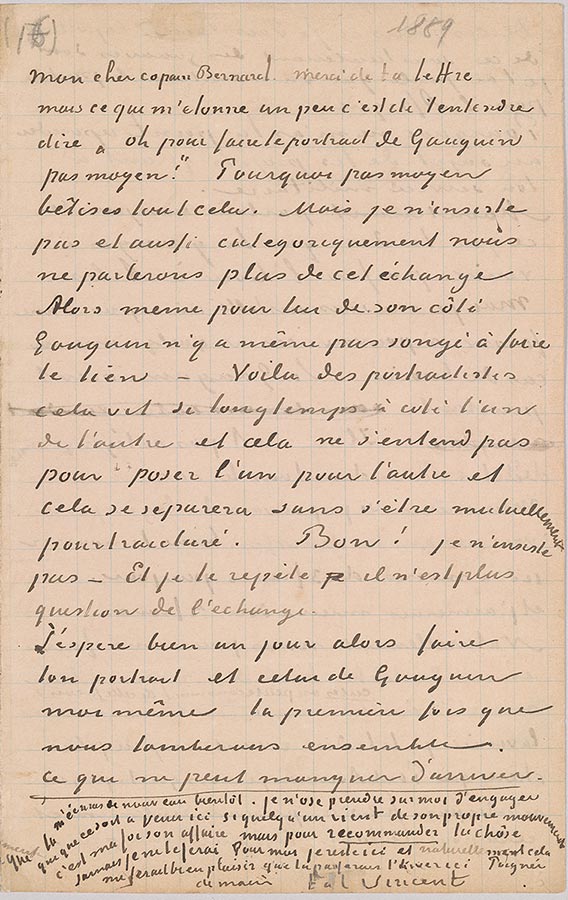 (16)
1889
mon cher copain Bernard. merci de ta lettre
mais ce que m'etonne un peu c'est de t'entendre
dire „ oh pour faire le portrait de Gauguin
pas moyen!" Pourquoi pas moyen
betises tout cela. Mais je n'insiste
pas et aussi categoriquement nous
ne parlerons plus de cet échange
Alors meme pour lui de son côté
Gauguin n'y a même pas songé à faire
le tien – Voila des portraitistes
cela vit si longtemps à coté l'un
de l'autre et cela ne s'entend pas
pour poser l'un pour l'autre et
cela se separera sans s'être mutuellement
pourtraicturé. Bon! je n'insiste
pas – Et je le repète il n'est plus
question de l'echange.
J'espere bien un jour alors faire
ton portrait et celui de Gauguin
moi même la première fois que
nous tomberons ensemble.
ce qui ne peut manquer d'arriver.
de nouveau bientôt. je n'ose prendre sur moi d'engager
qui que ce soit a venir ici si quelqu'un vient de son propre mouvement
c'est ma foi son affaire mais pour recommander la chose
jamais je ne le ferai Pour moi je reste ici et naturellement cela
me ferait bien plaisir que tu l'hiver ici
Poignée
de main t. à t. Vincent